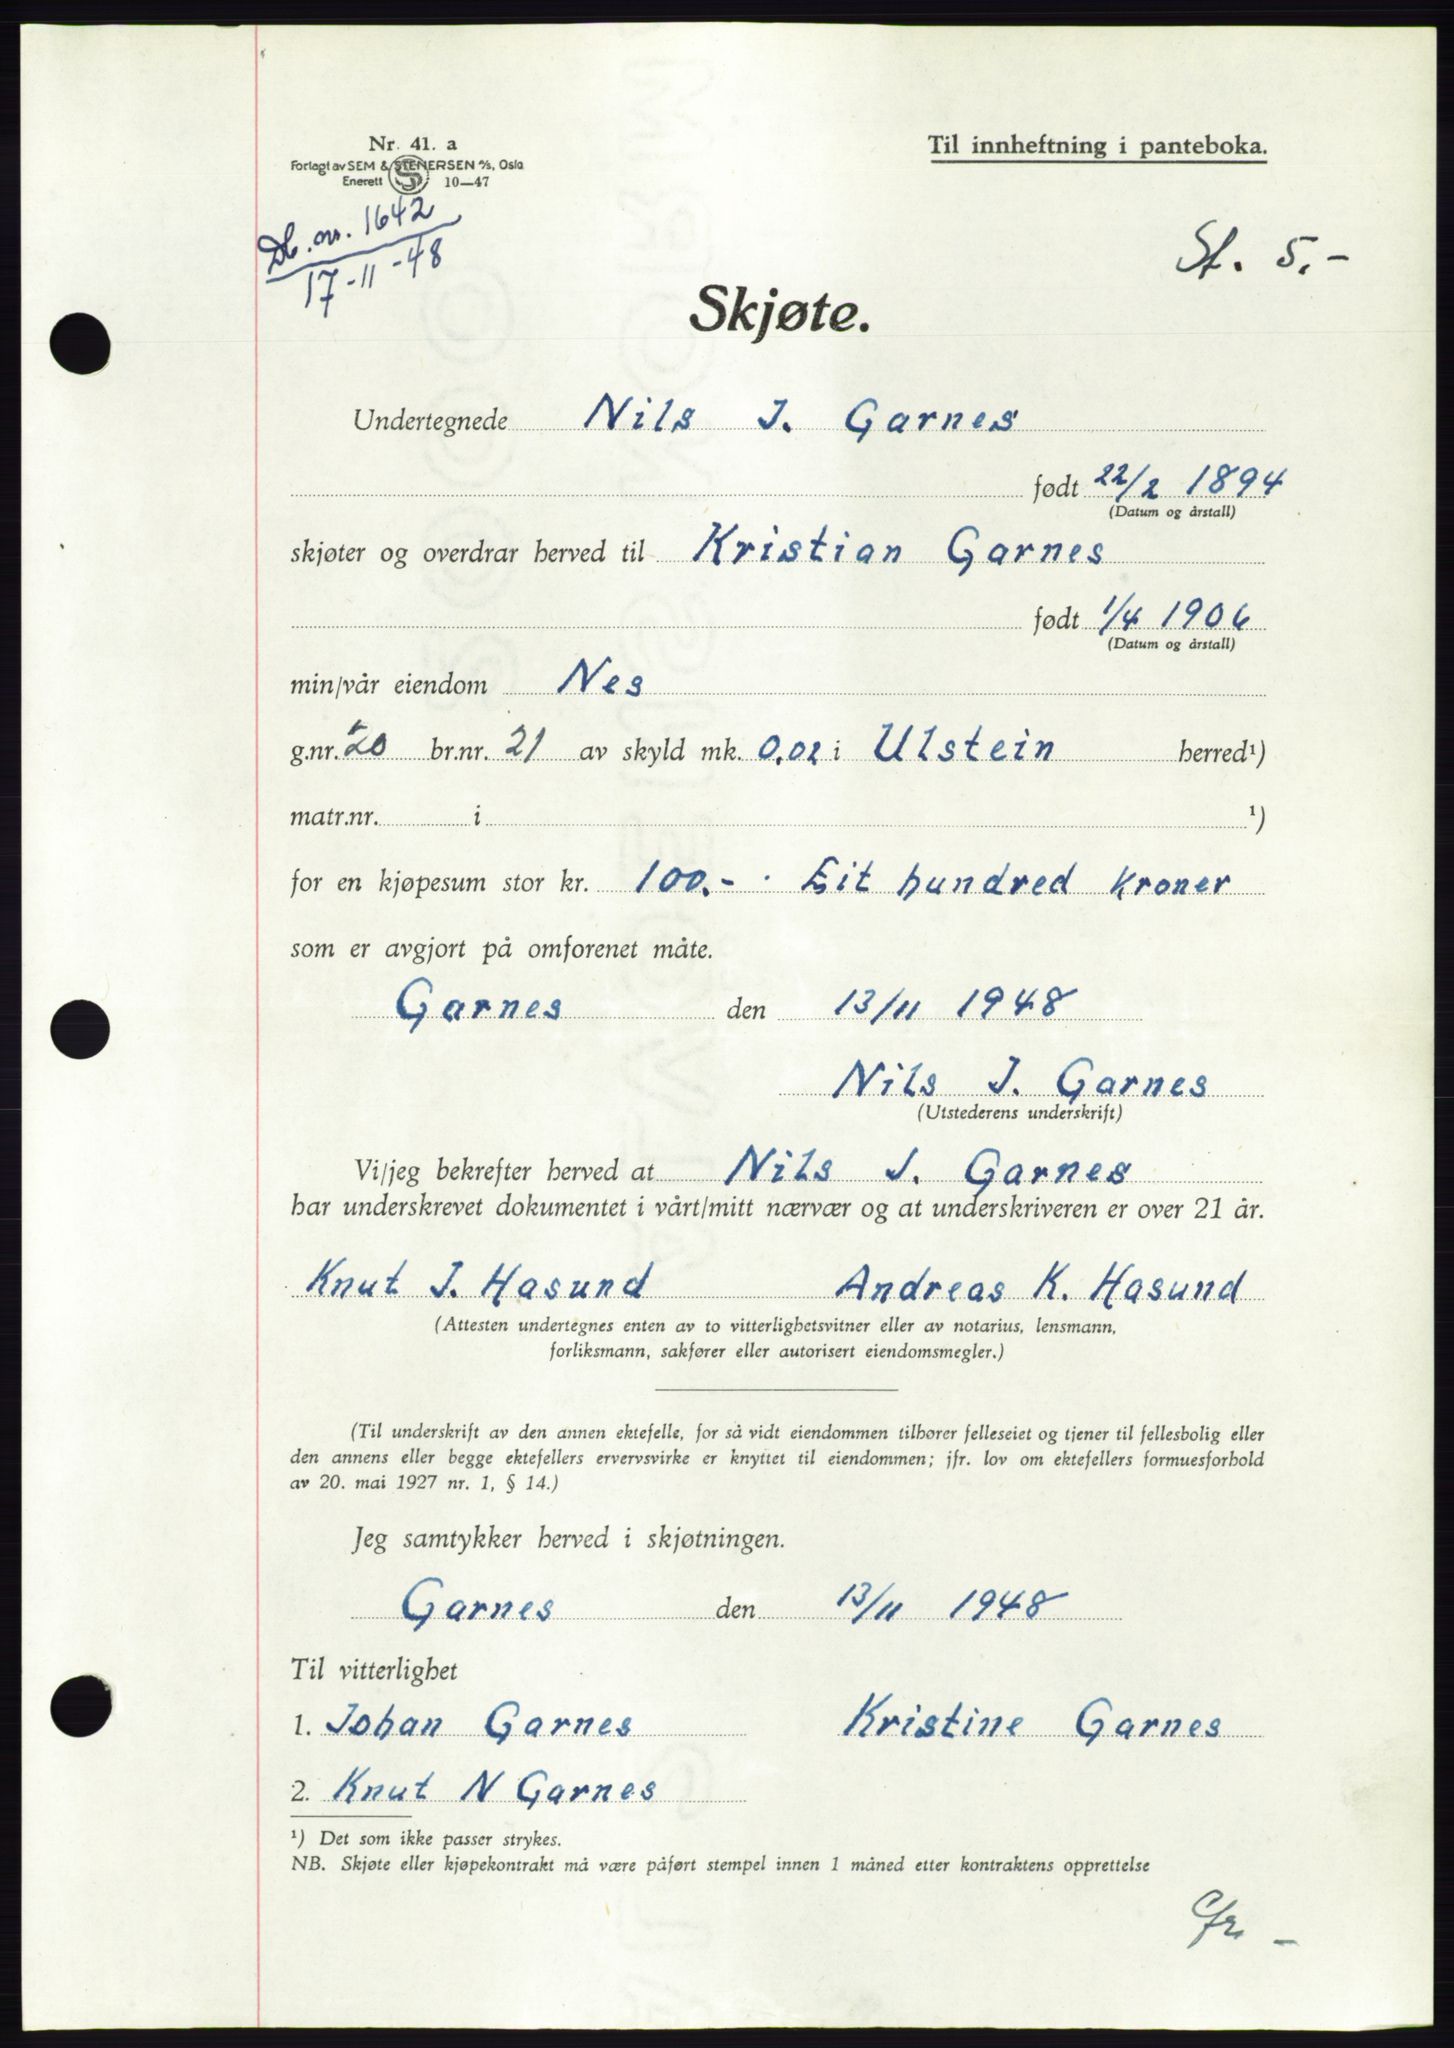 Nr. 41. a
Forlagt av SEM & STENERSEN A/S, Oslo
Enerett S 10—47
Til innheftning i panteboka.
Db. nr. 1642
17-11-48
St. 5.-
Skjøte.
Undertegnede Nils J. Garnes
født 22/2 1894
(Datum og årstall)
skjøter og overdrar herved til Kristian Garnes
født 1/4 1906
(Datum og årstall)
min/vår eiendom Nes
g.nr. 20 br.nr. 21 av skyld mk. 0,02 i Ulstein herred¹)
matr.nr. i ¹)
for en kjøpesum stor kr. 100.- Eit hundred kroner
som er avgjort på omforenet måte.
Garnes den 13/11 1948
Nils J. Garnes
(Utstederens underskrift)
Vi/jeg bekrefter herved at Nils J. Garnes
har underskrevet dokumentet i vårt/mitt nærvær og at underskriveren er over 21 år.
Knut J. Hasund Andreas K. Hasund
(Attesten undertegnes enten av to vitterlighetsvitner eller av notarius, lensmann,
forliksmann, sakfører eller autorisert eiendomsmegler.)
(Til underskrift av den annen ektefelle, for så vidt eiendommen tilhører felleseiet og tjener til fellesbolig eller
den annens eller begge ektefellers ervervsvirke er knyttet til eiendommen; jfr. lov om ektefellers formuesforhold
av 20. mai 1927 nr. 1, § 14.)
Jeg samtykker herved i skjøtningen.
Garnes den 13/11 1948
Til vitterlighet
1. Johan Garnes Kristine Garnes
2. Knut N Garnes
¹) Det som ikke passer strykes.
NB. Skjøte eller kjøpekontrakt må være påført stempel innen 1 måned etter kontraktens opprettelse